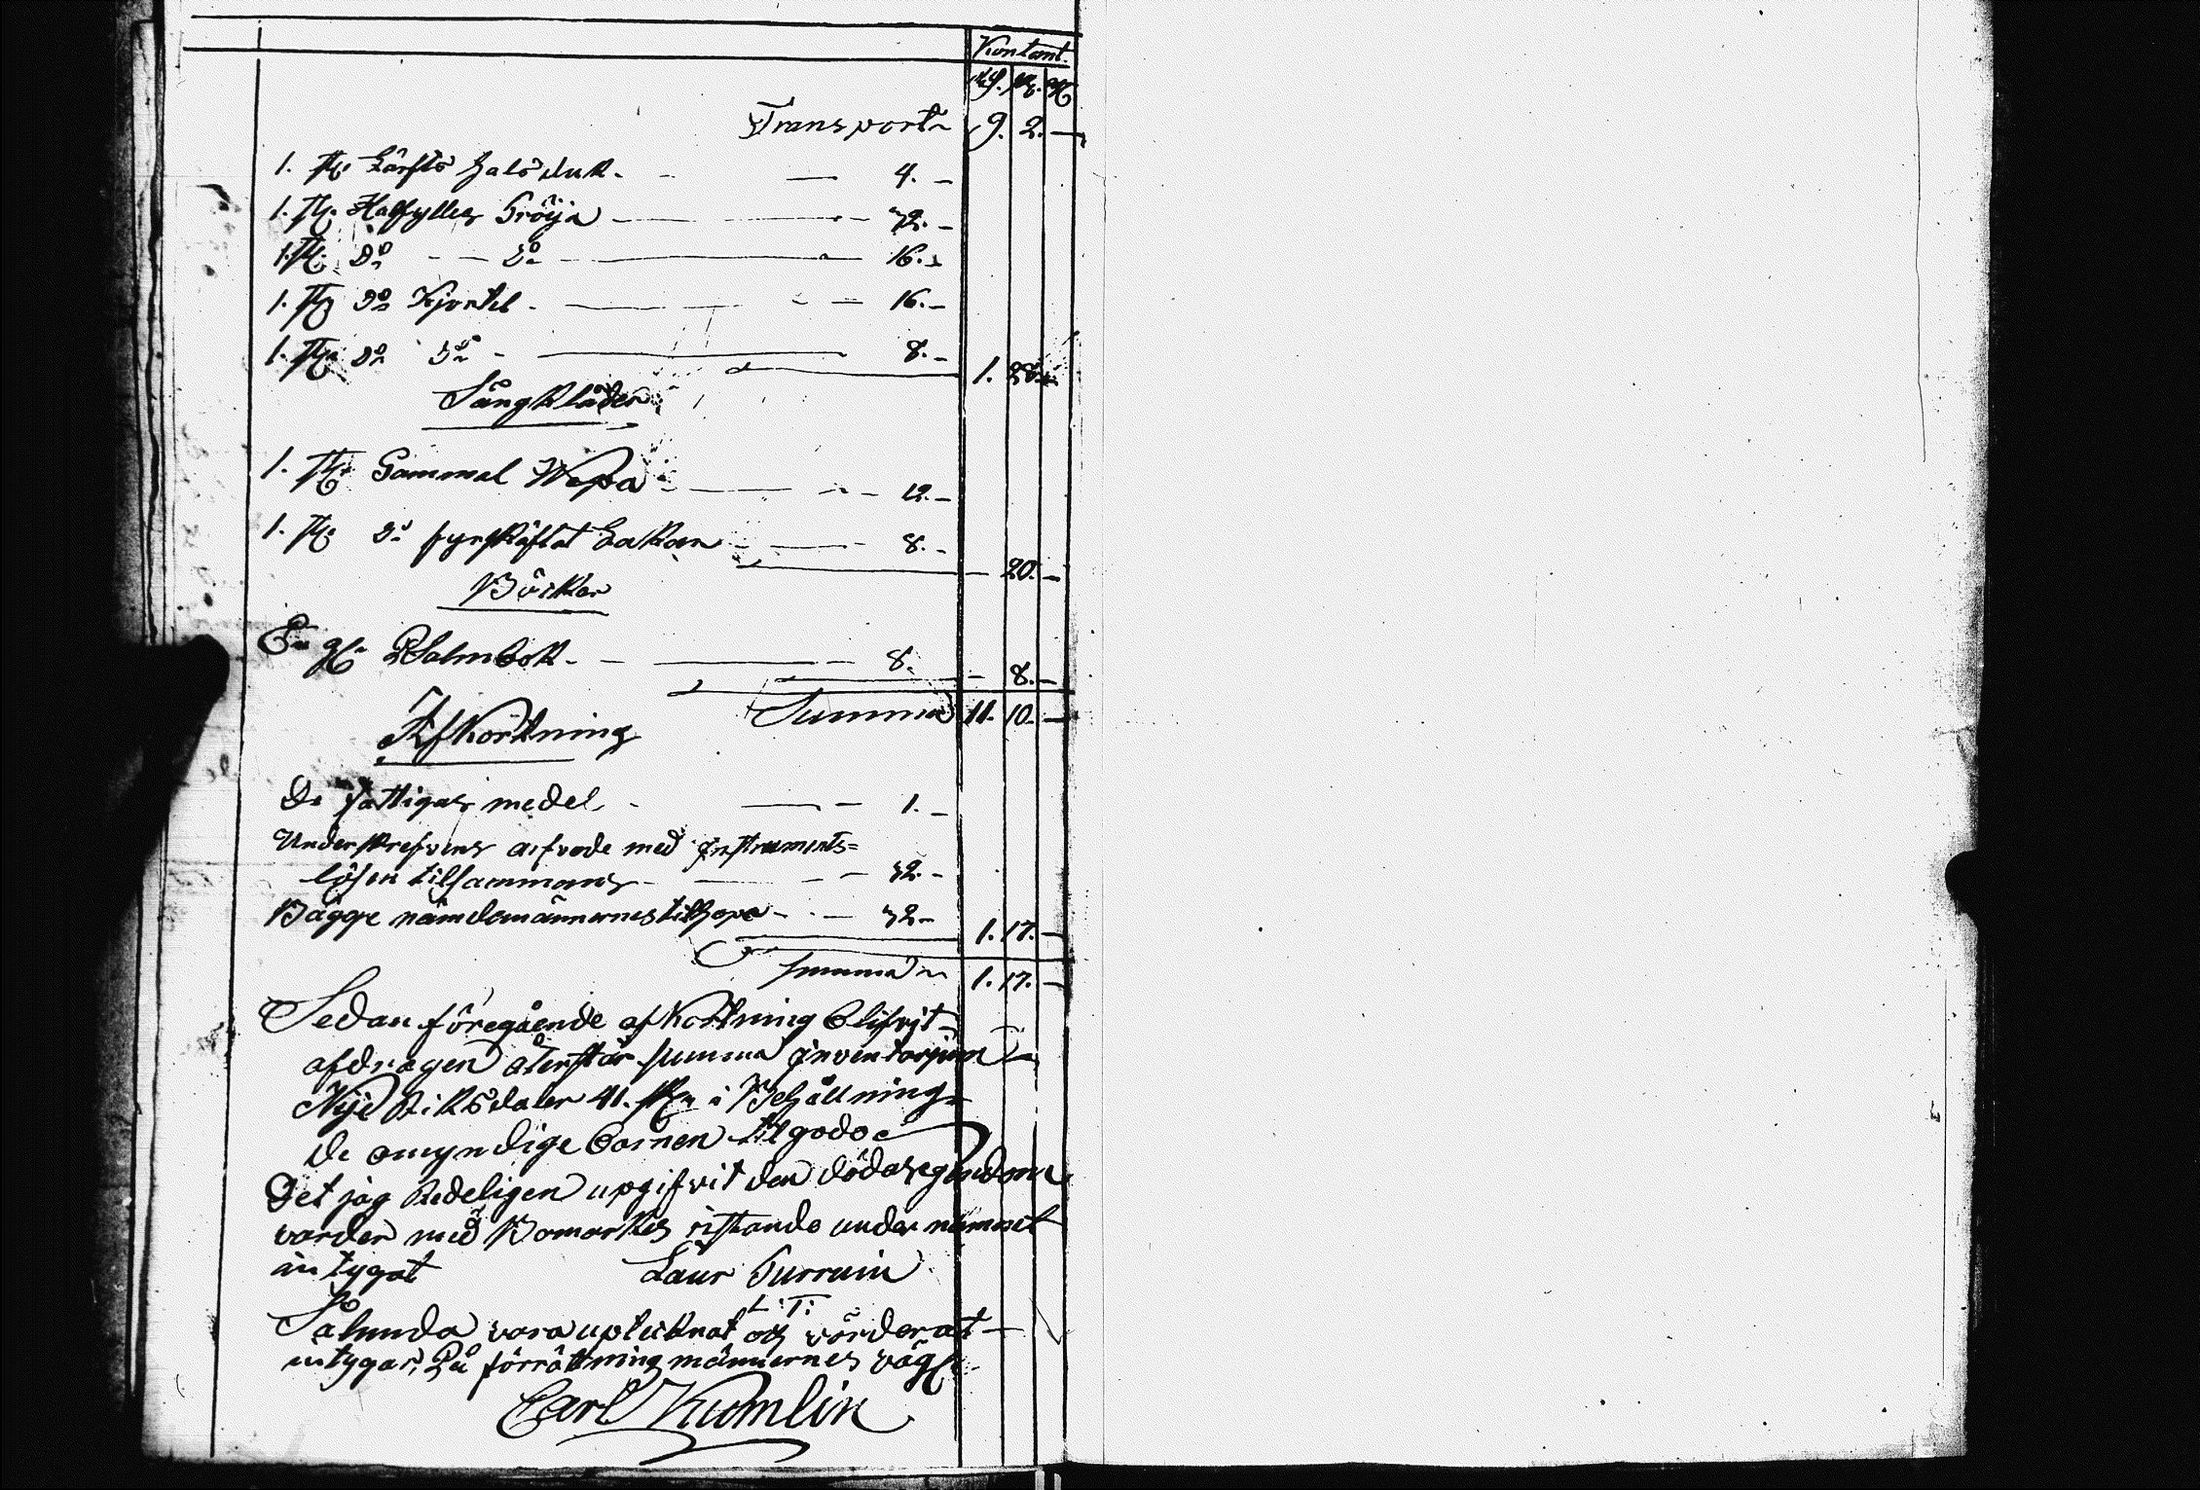 Kontant.
Transport 9. 2. —
1. st. Lärfts halsduk - — 4. —
1. st. Halfylles Tröija — 32. —
1. st. Do — Do — 16. —
1. st. Do Kjortel — 16. —
1. st. Do Do — 8. — 1. 28. —
Sängkläder
1. st. Gammal Wepa — 12. —
1. st. Do fyrskäftat Lakan — 8. — — 20. —
Böcker
En Psalmbok — 8. — 8. —
Summa 11. 10. —
Afkortning
De fattigas medel — 1. —
Underskrefvens arfvode med Instruments-
lösen tilsammans — 32. —
Bägge nämdemännernes tilhopa — 32 — 1. 17. —
Summa 1. 17. —
Sedan föregående afkortning blifvit
afdragen återstår summa Inventarium
Nije Riksdaler 41. sk. i Behållning
De omyndige barnen til godo
Det jag Redeligen upgifvit den dödas egendom
varder med Bomerkes ristande under namnet
in tygat Laur Turruin
L. T:
Sålunda vara upteknat och värderat
intygar, På förrättningsmännernes väg.
Carl Kumlin